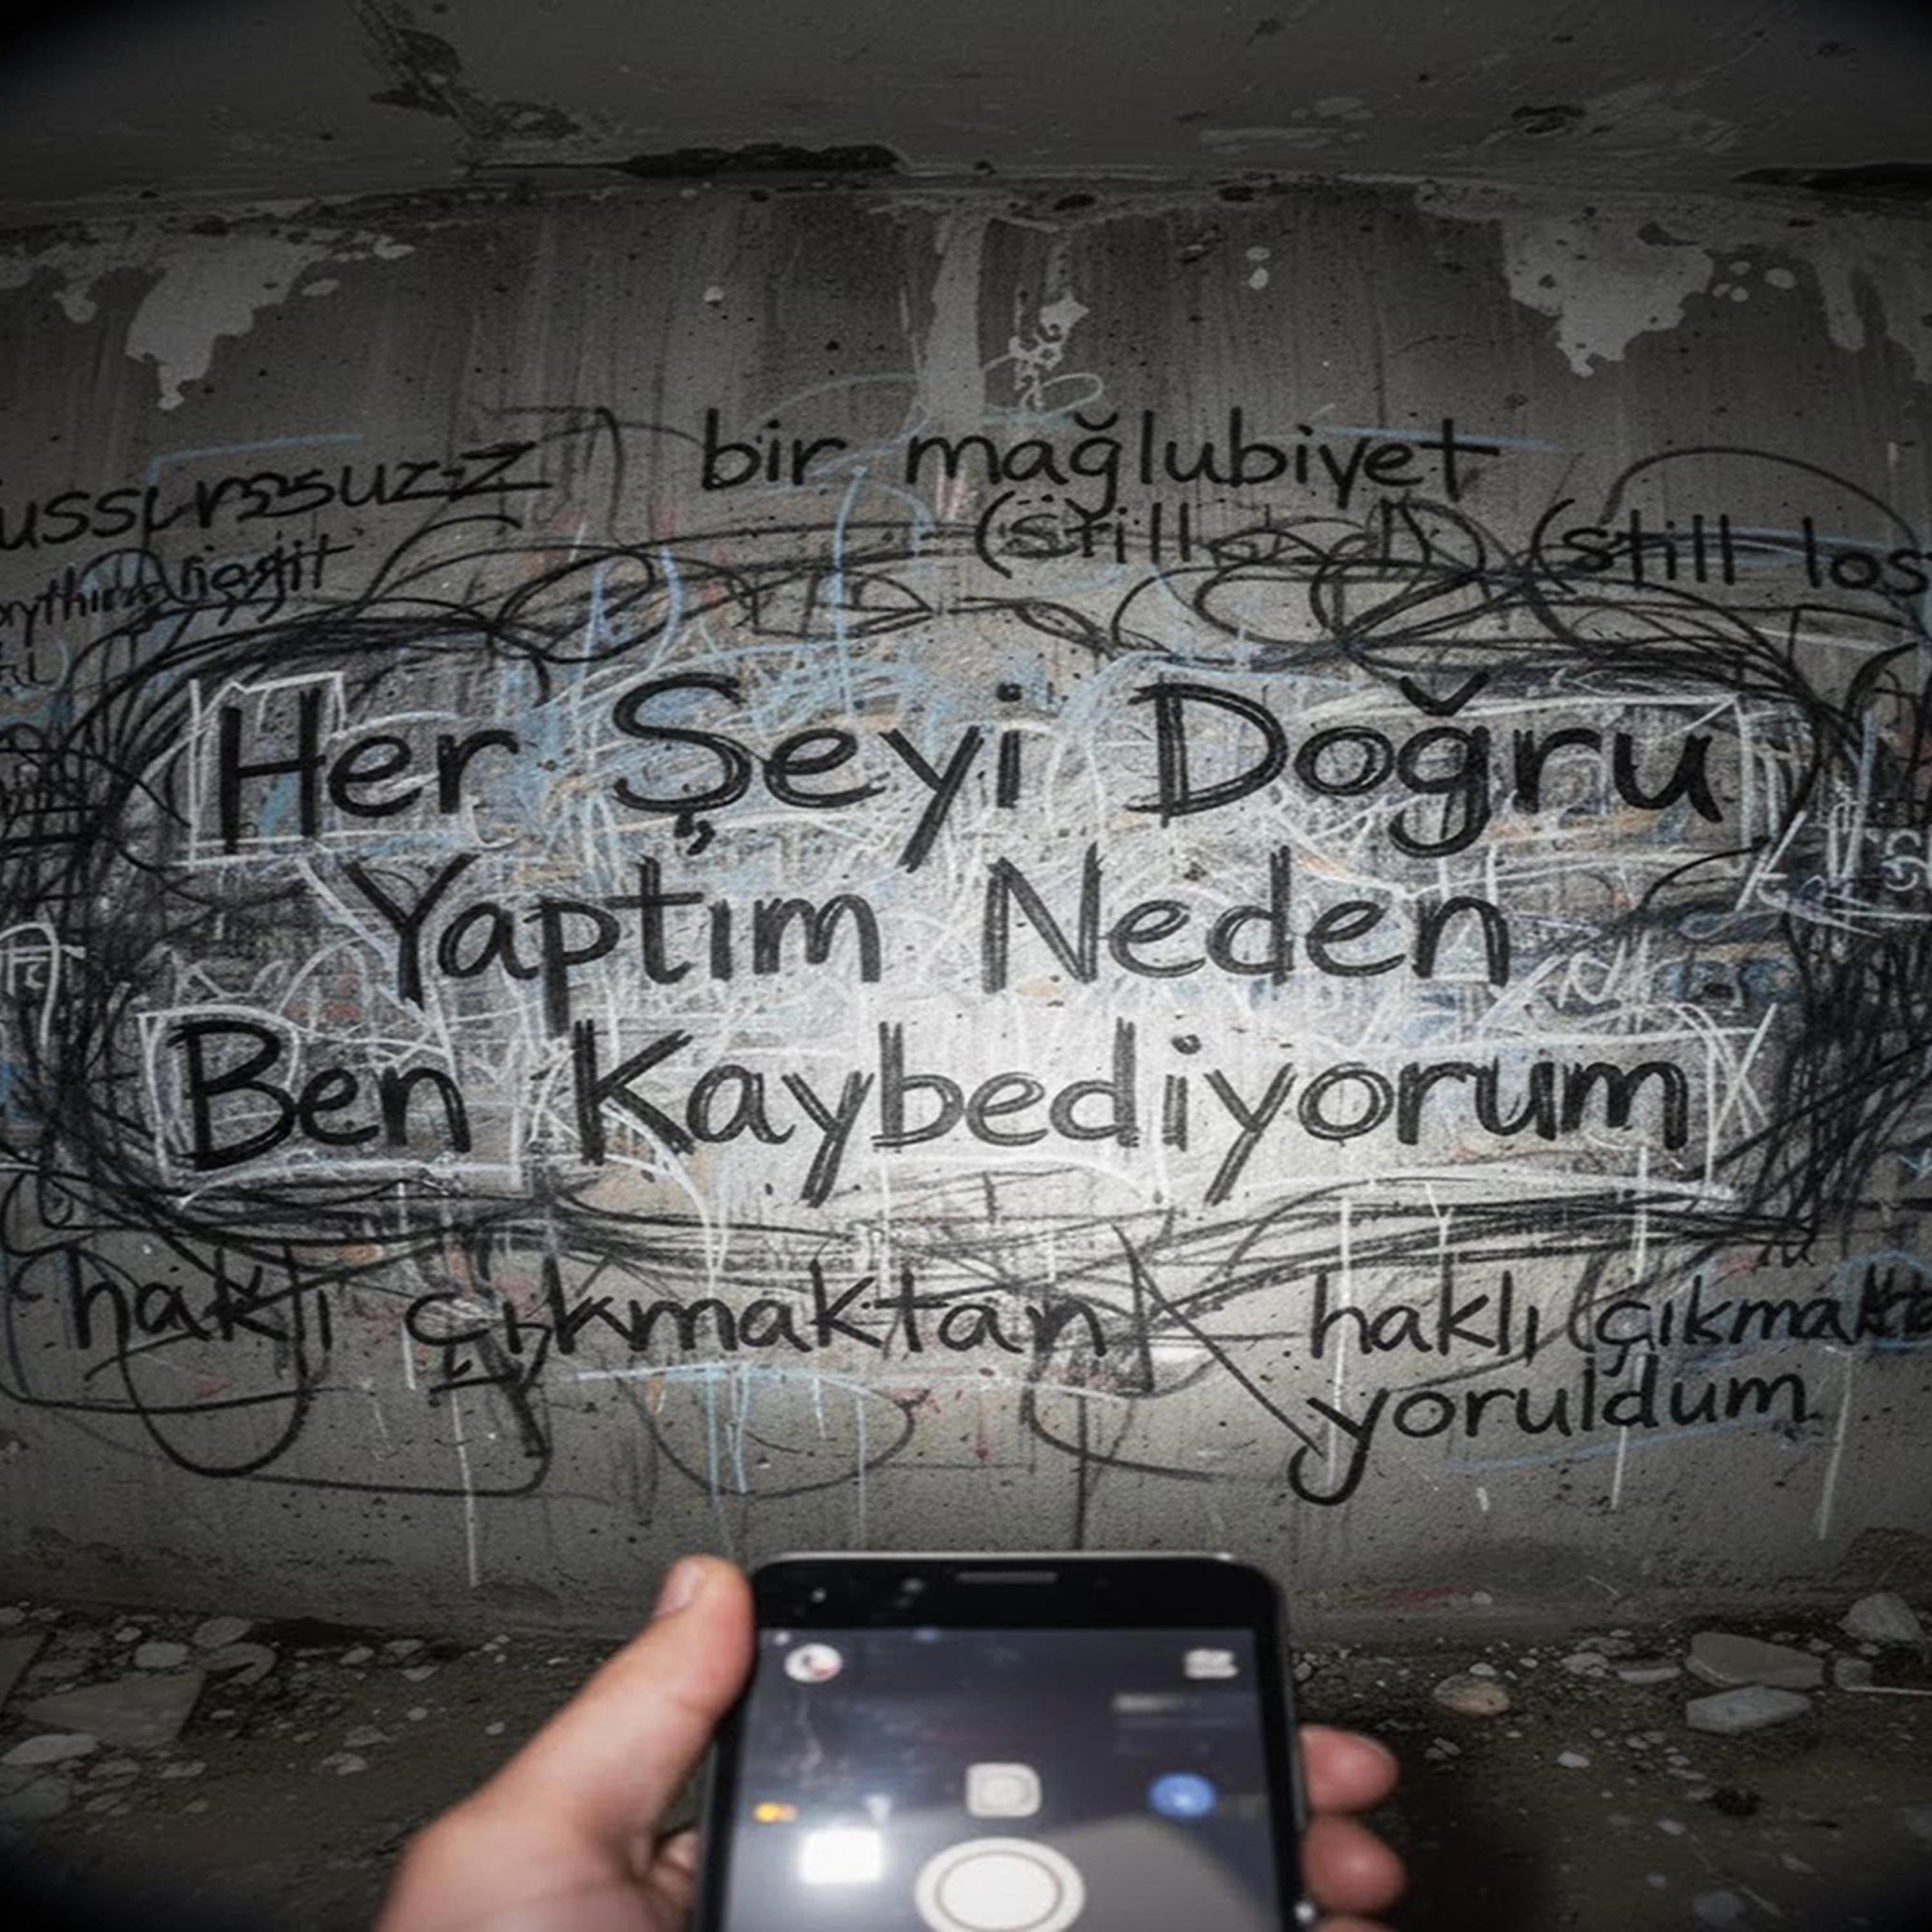 bir mağlubiyet
(still (still los
Her Şeyi Doğru
Yaptım Neden
Ben Kaybediyorum
haklı çıkmaktan haklı çıkmakta
yoruldum